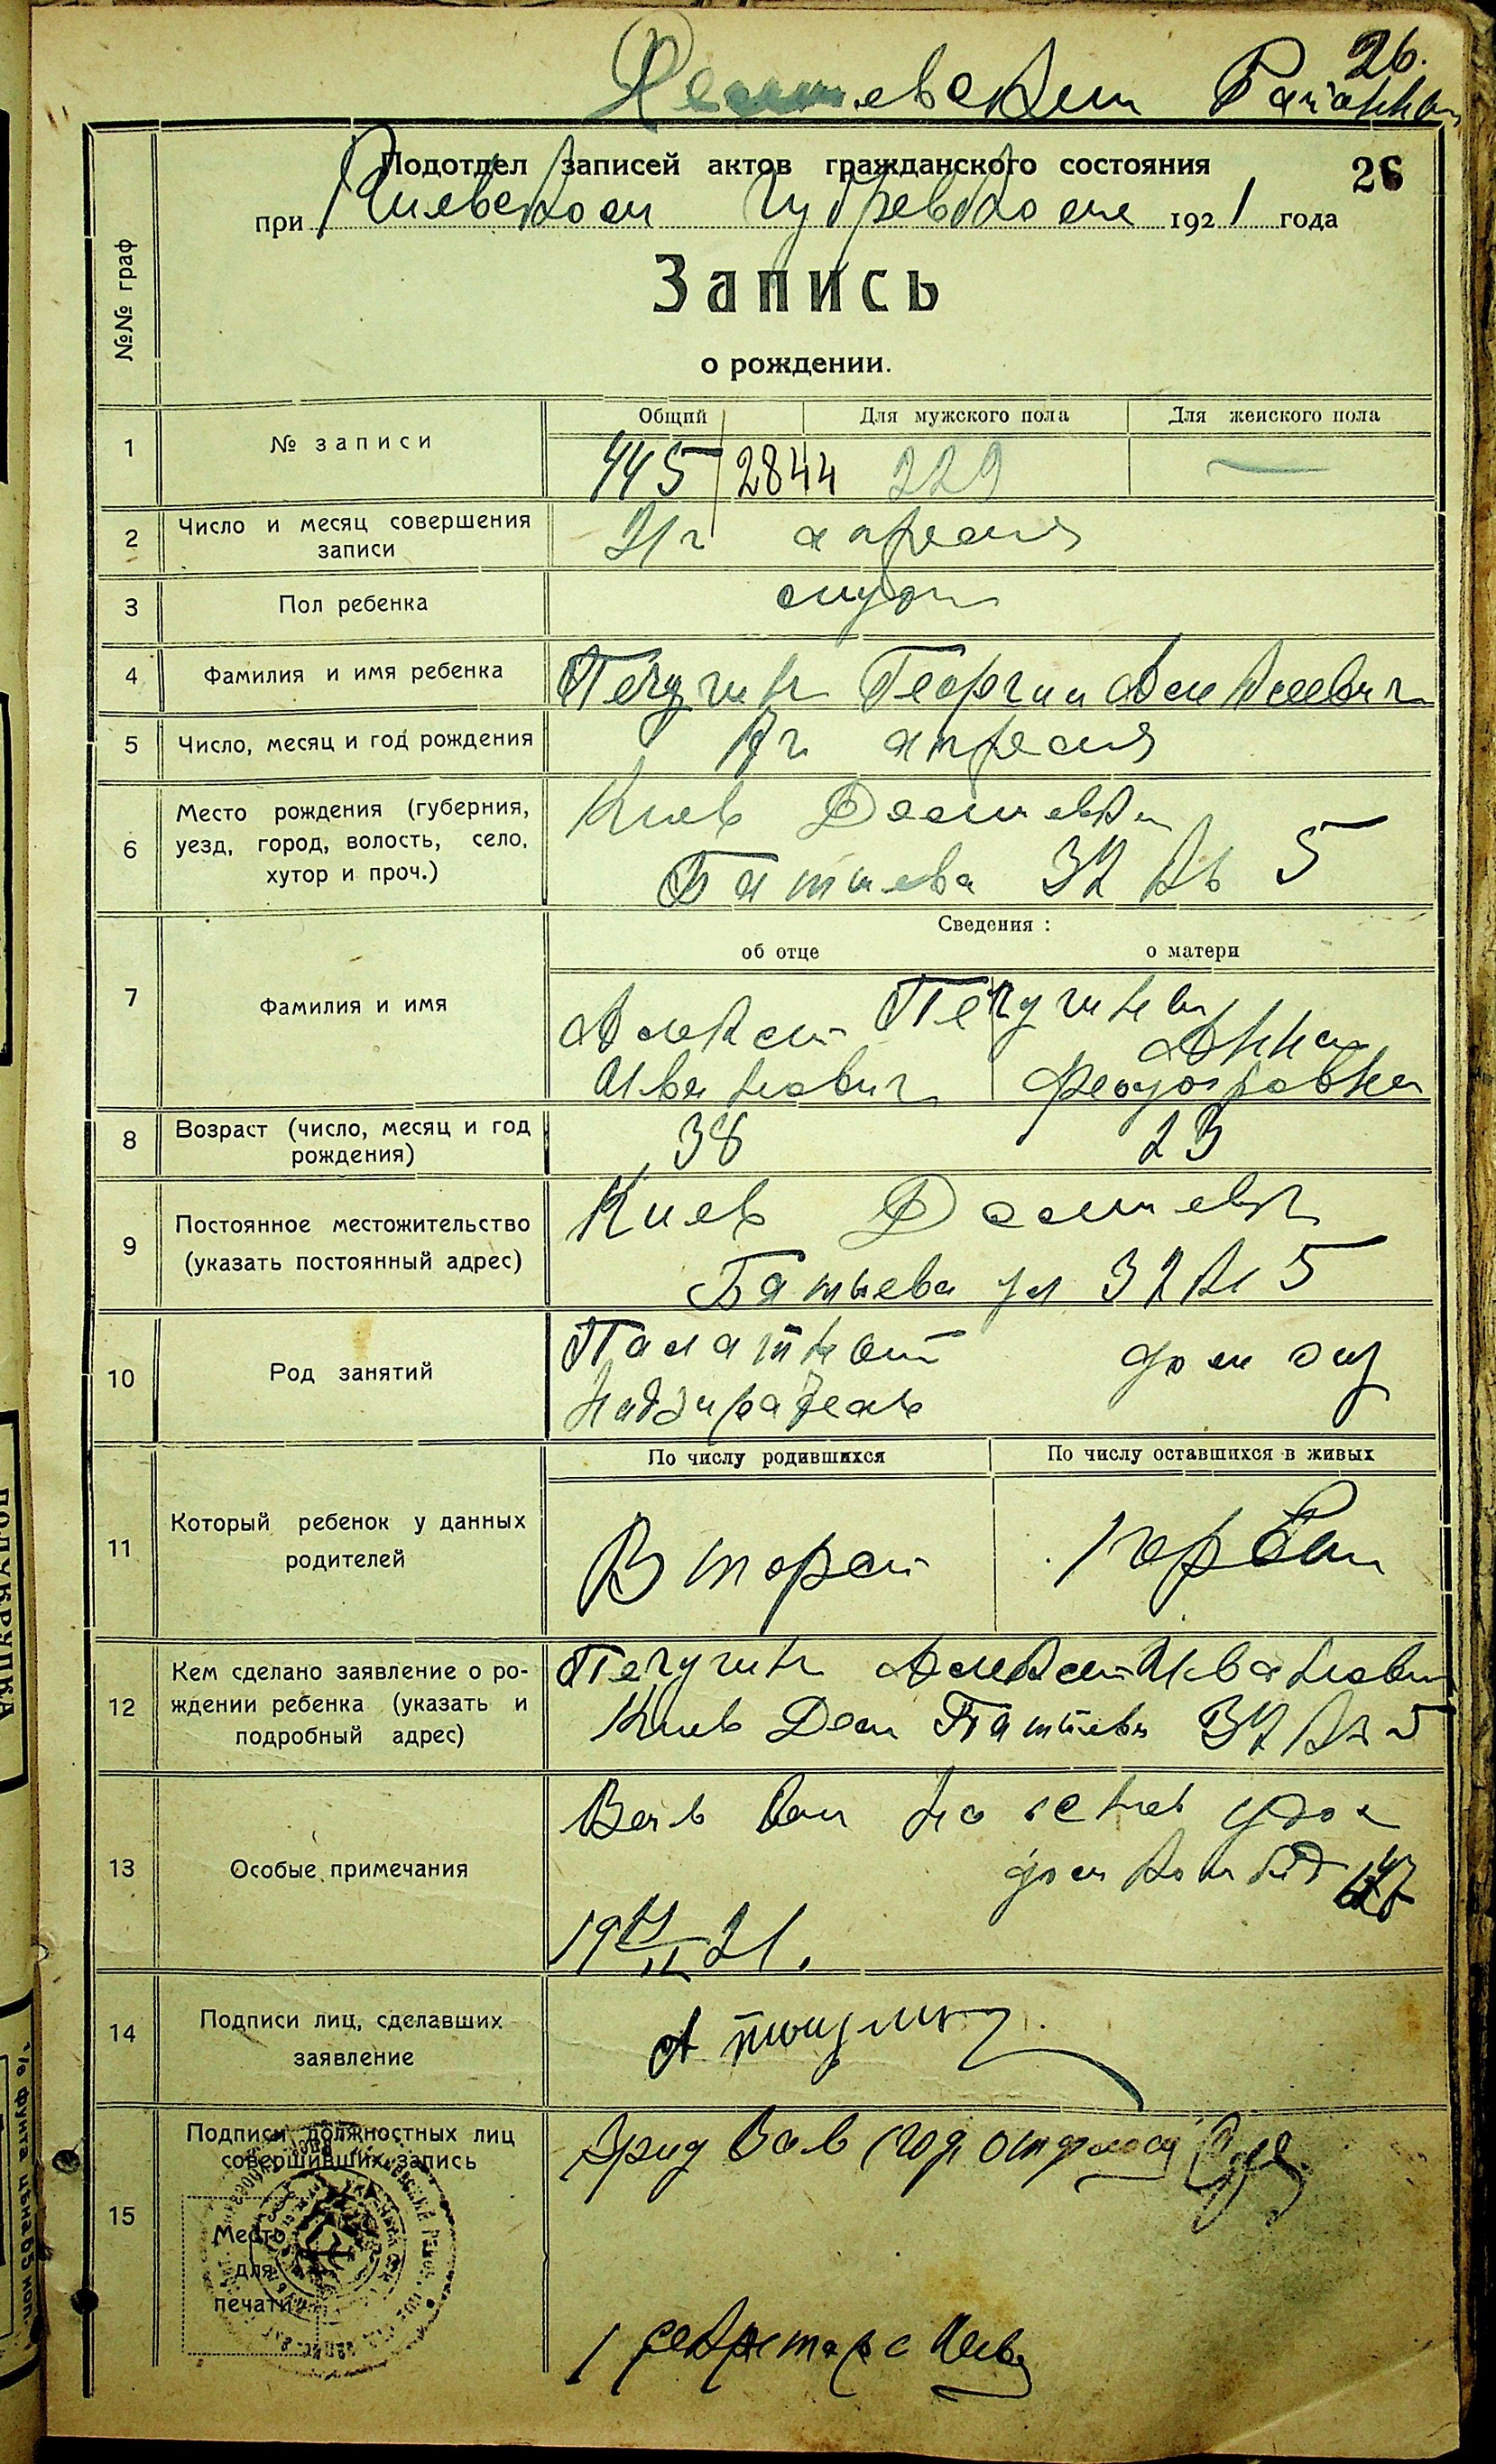 26.
Подотдел записей актов гражданского состояния
26
при Киевском Губревкоме 1921 года
№№ граф
Запись
о рождении.
Общий Для мужского пола Для женского пола
1 № записи 445 2844 229 —
2 Число и месяц совершения
записи
21г апреля
3 Пол ребенка
4 Фамилия и имя ребенка Печугин Георгий Алексеевич
5 Число, месяц и год рождения апреля
6 Место рождения (губерния,
уезд, город, волость, село,
хутор и проч.)
Киев Демиевка
Батыева 32 кв 5
Сведения :
об отце о матери
7 Фамилия и имя
Печугины
Алексей Анна
Иванович Феодоровна
8 Возраст (число, месяц и год
рождения)
38 23
9 Постоянное местожительство
(указать постоянный адрес)
Киев Демиевка
Батыева ул 32 кв 5
10 Род занятий
Палатный дом хоз
Надзиратель
По числу родившихся По числу оставшихся в живых
11 Который ребенок у данных
родителей
Второй первый
12 Кем сделано заявление о ро-
ждении ребенка (указать и
подробный адрес)
Печугин Алексей Иванович
Киев Дем Батыева 32 кв 5
13 Особые примечания
14 Подписи лиц, сделавших
заявление
15 Подписи должностных лиц
совершивших запись
Место
для
печати